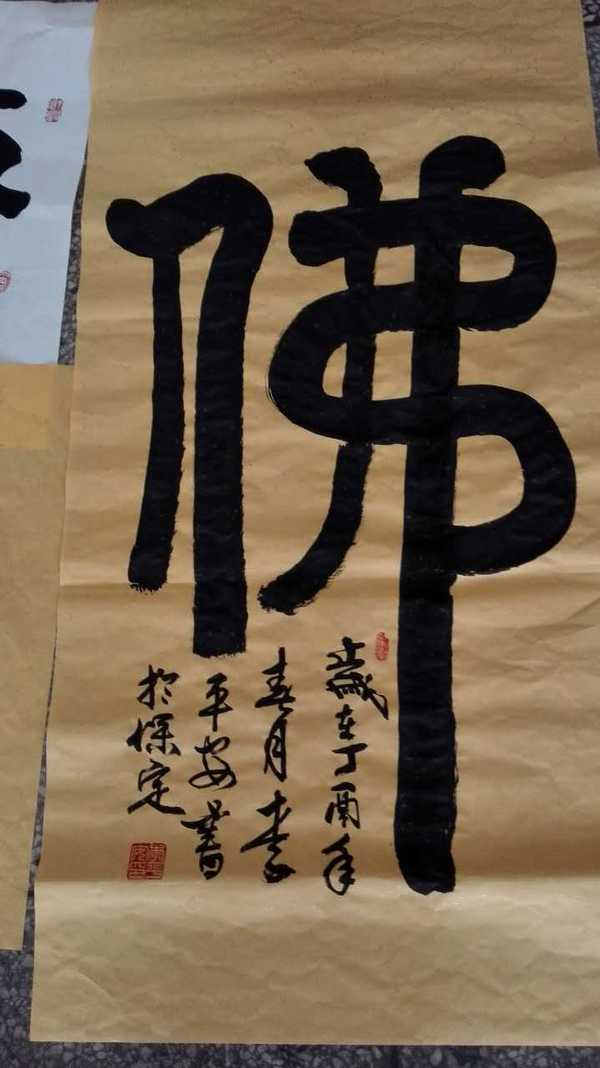 佛
歲在丁酉年
春月李
平安書
於保定